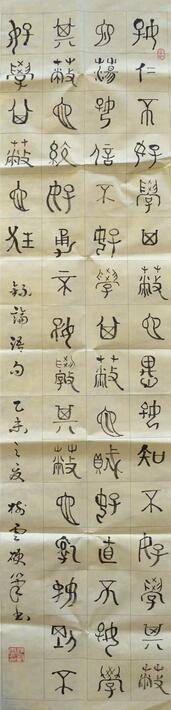 好仁不好學其蔽也愚好知不好學其蔽
也蕩好信不好學其蔽也賊好直不好學
其蔽也絞好勇不好學其蔽也亂好剛不
好學其蔽也狂
錄論語句 乙未之夏 書